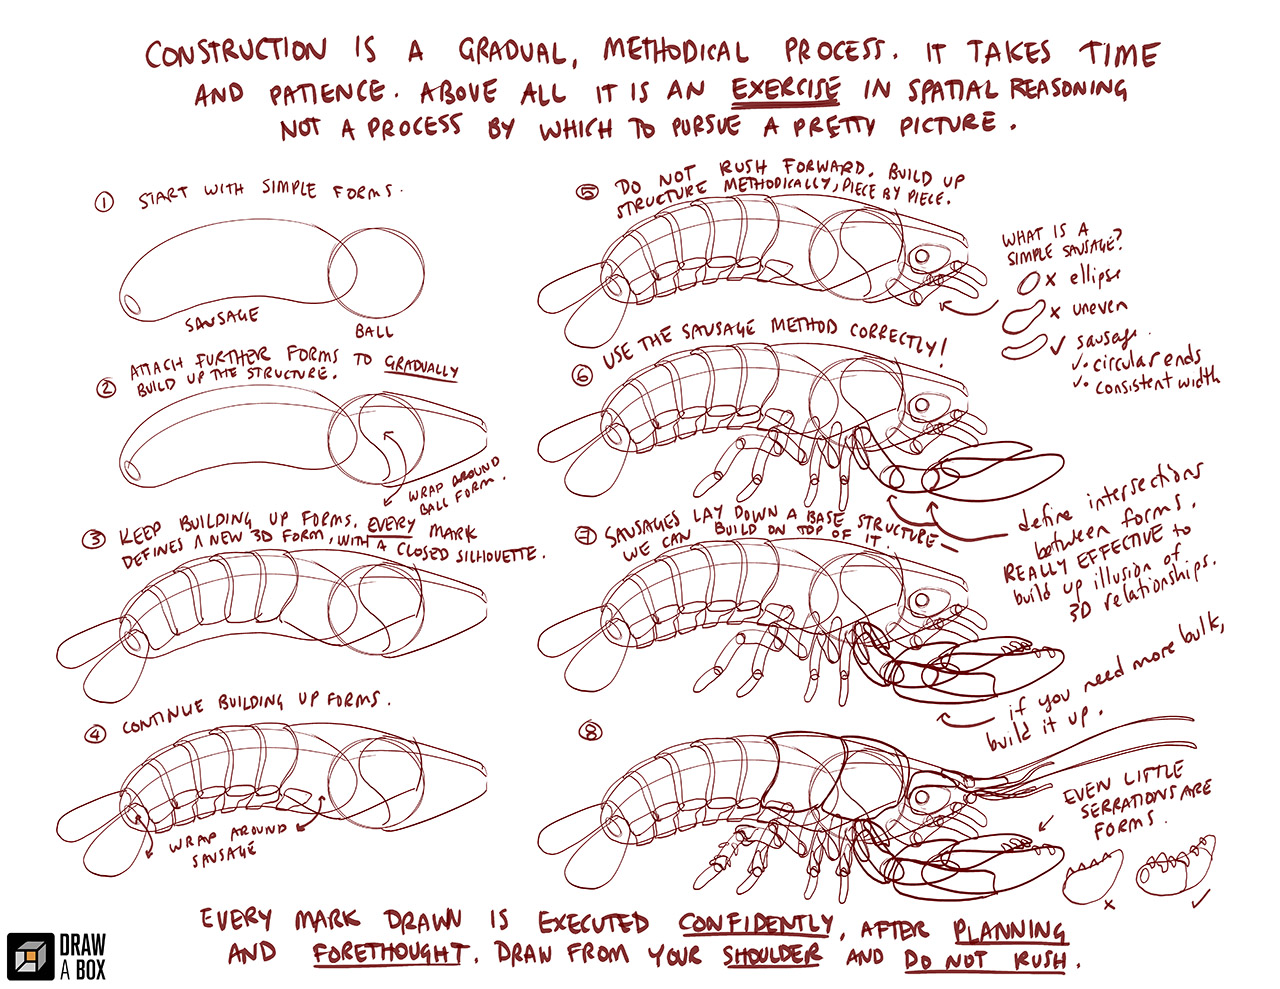 CONSTRUCTION IS A GRADUAL, METHODICAL PROCESS. IT TAKES TIME
AND PATIENCE. ABOVE ALL IT IS AN EXERCISE IN SPATIAL REASONING
NOT A PROCESS BY WHICH TO PURSUE A PRETTY PICTURE.
① START WITH SIMPLE FORMS.
SAUSAGE
BALL
② ATTACH FURTHER FORMS TO GRADUALLY
BUILD UP THE STRUCTURE.
WRAP AROUND
BALL FORM.
③ KEEP BUILDING UP FORMS. EVERY MARK
DEFINES A NEW 3D FORM, WITH A CLOSED SILHOUETTE.
④ CONTINUE BUILDING UP FORMS.
WRAP AROUND
SAUSAGE
⑤ DO NOT RUSH FORWARD. BUILD UP
STRUCTURE METHODICALLY, PIECE BY PIECE.
WHAT IS A
SIMPLE SAUSAGE?
x ellipse
x uneven
✓ sausage.
✓. circular ends
✓. consistent width
⑥ USE THE SAUSAGE METHOD CORRECTLY!
define intersections
between forms.
REALLY EFFECTIVE to
build up illusion of
3D relationships.
⑦ SAUSAGES LAY DOWN A BASE STRUCTURE
WE CAN BUILD ON TOP OF IT.
if you need more bulk,
build it up.
⑧
EVEN LITTLE
SERRATIONS ARE
FORMS.
x ✓
EVERY MARK DRAWN IS EXECUTED CONFIDENTLY, AFTER PLANNING
AND FORETHOUGHT. DRAW FROM YOUR SHOULDER AND DO NOT RUSH.
DRAW
A BOX